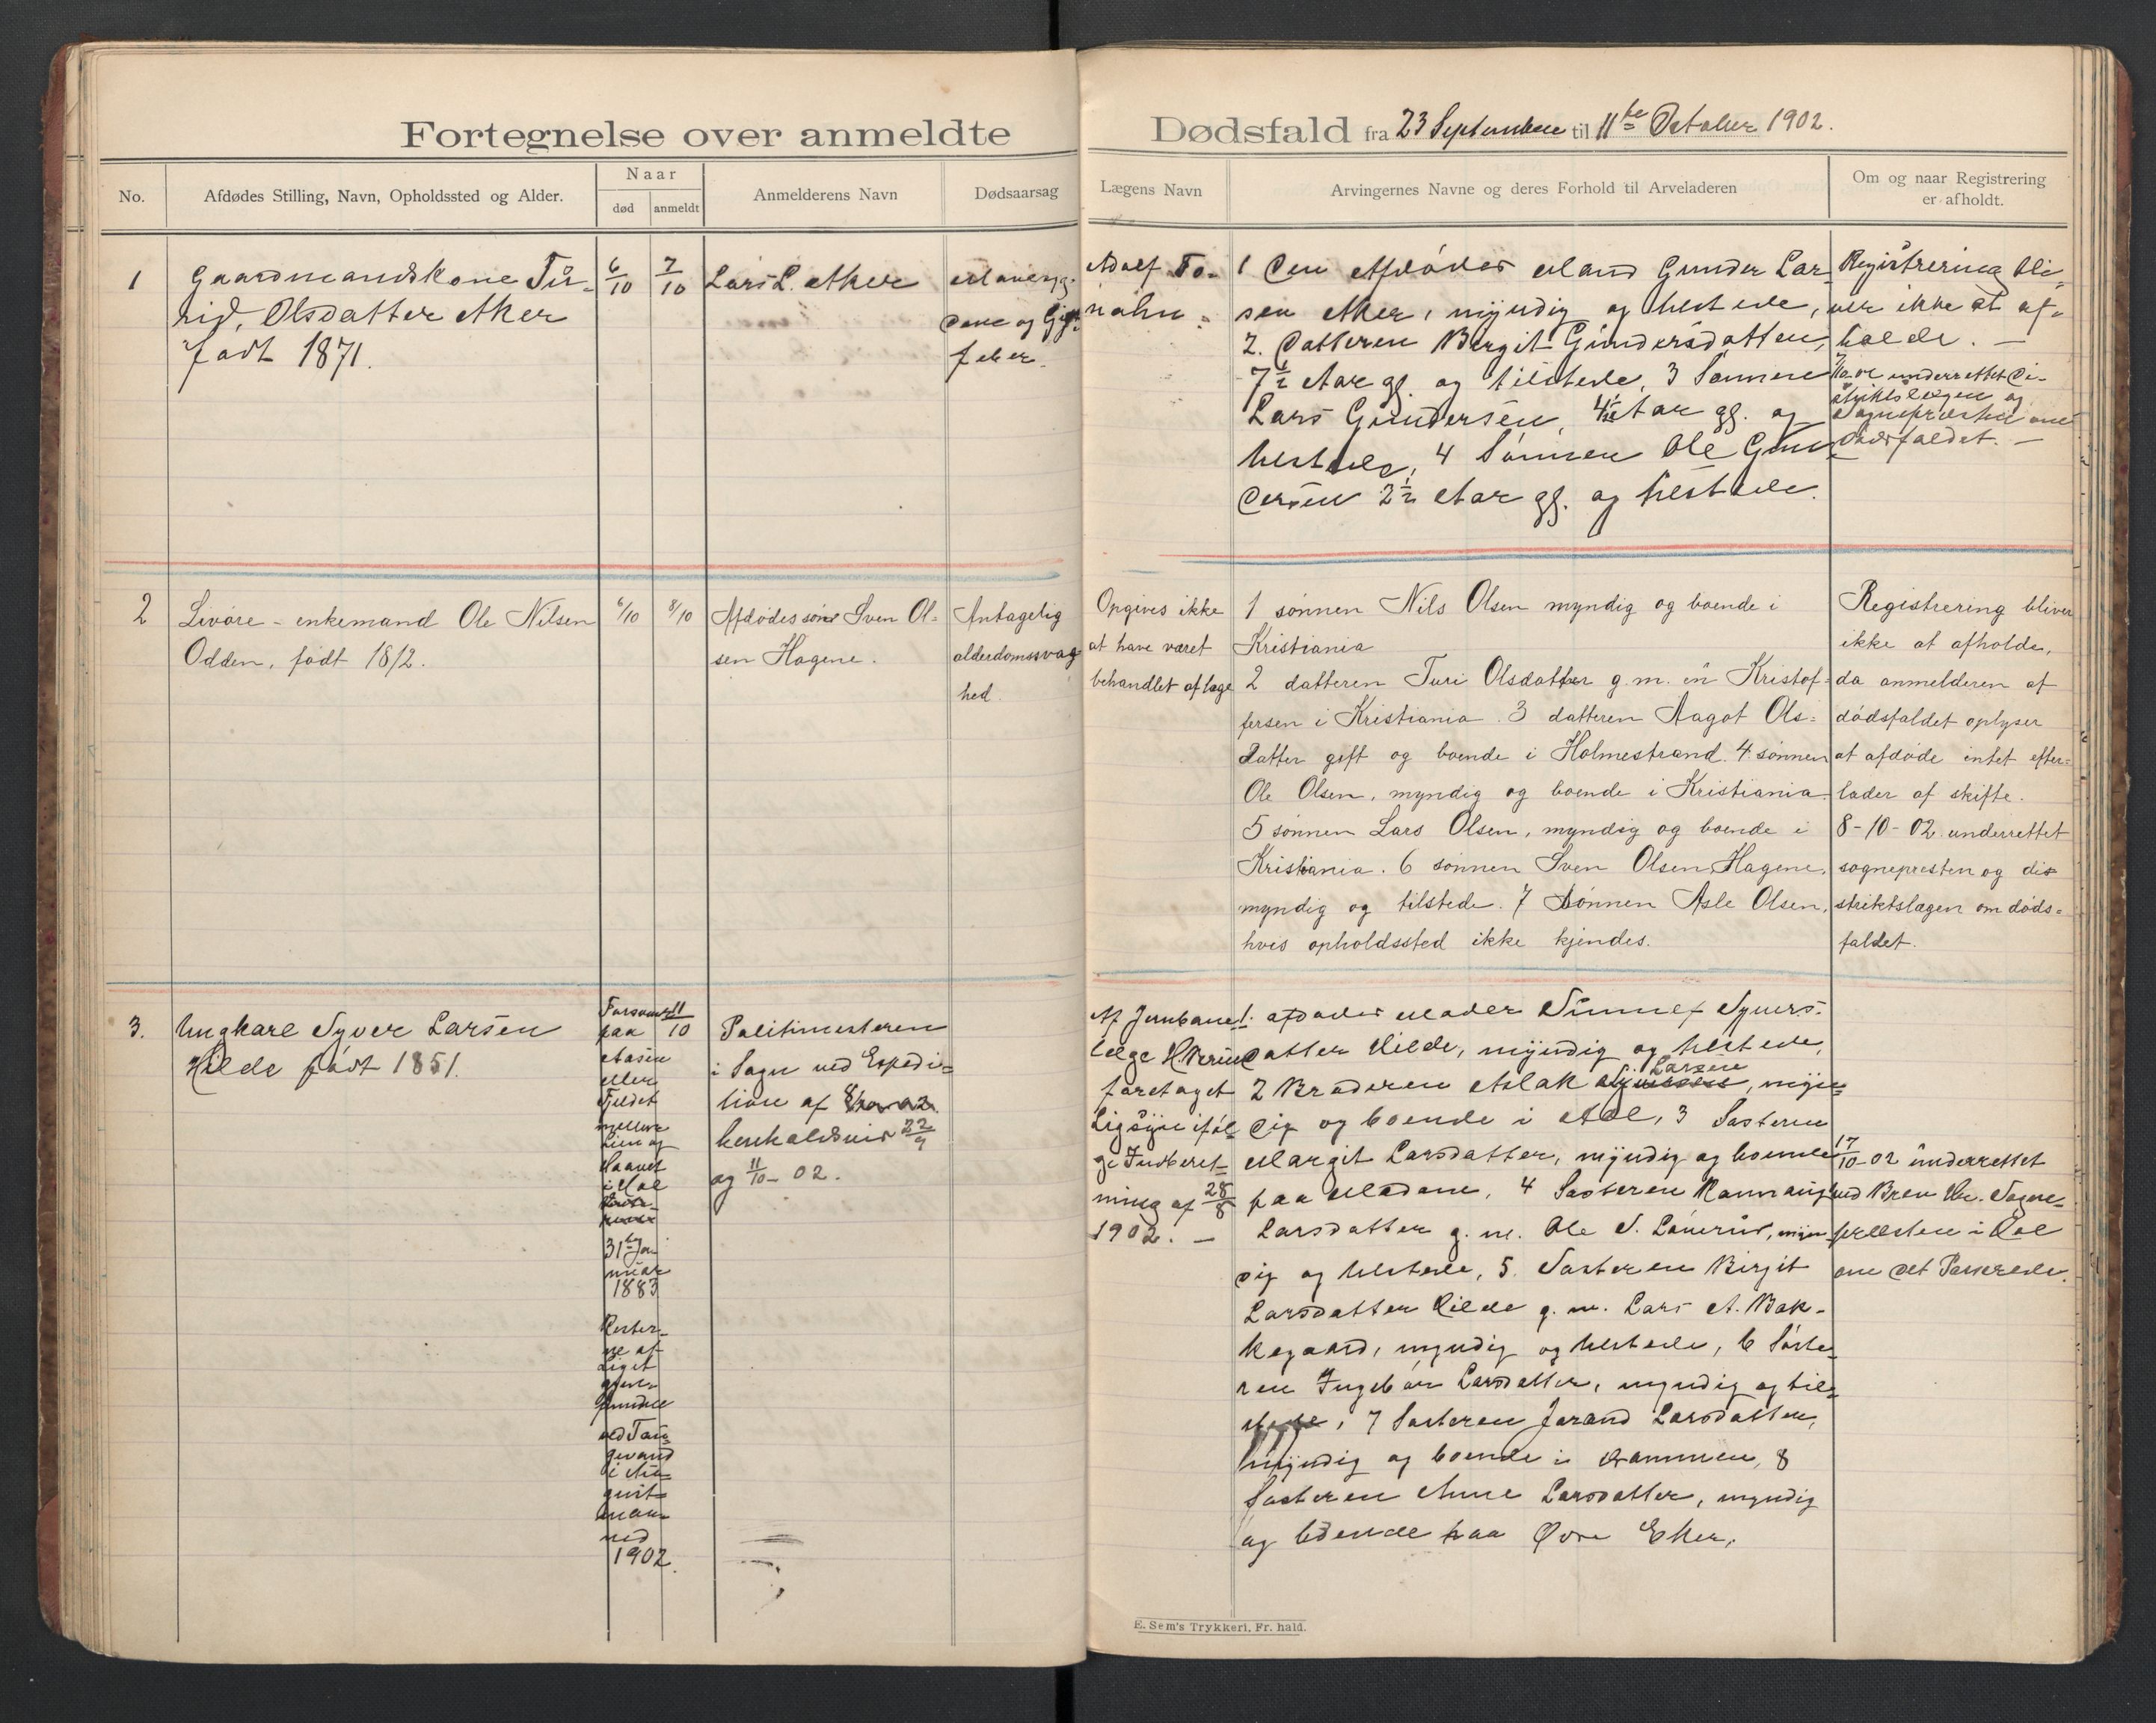 Fortegnelse over anmeldte
Dødsfald fra 23 September til 11te October 1902.
No.
Afdødes Stilling, Navn, Opholdssted og Alder.
Naar
død
anmeldt
Anmelderens Navn
Dødsaarsag
Lægens Navn
Arvingernes Navne og deres Forhold til Arveladeren
Om og naar Registrering
er afholdt.
1
Gaardmandskone Tu-
rid, Olsdatter Aker
født 1871.
6/10
7/10
Lars L. Aker
og Gigt
feber.
Adolf To-
1 Den Afdødes Mand Gunder Lar
sen Aker, myndig og tilstede,
2. Datteren Birgit Gundersdatter,
7½ Aar gl. og tilstede, 3 Sønnen
Lars Gundersen, 4½ Aar gl. og
tilstede, 4 Sønnen Ole Gun
dersen 2½ Aar gl. og tilstede.
Registrering bli-
ver ikke at af-
holde. —
7/10 02 underrettet Di-
striktslægen og
Sognepræsten om
Dødsfaldet. —
2
Livøre - enkemand Ole Nilsen
Odden, født 1812.
6/10
8/10
Afdødes søn Sven Ol-
sen Hagene.
Antagelig
alderdomssvag
hed.
Opgives ikke
at have været
behandlet af læge
1 sønnen Nils Olsen myndig og boende i
Kristiania
2 datteren Turi Olsdatter g. m. en Kristof-
fersen i Kristiania. 3 datteren Aagot Ols-
datter gift og boende i Holmestrand. 4 sønnen
Ole Olsen, myndig og boende i Kristiania.
5 sønnen Lars Olsen, myndig og boende i
Kristiania. 6 sønnen Sven Olsen Hagene,
myndig og tilstede. 7 Sønnen Asle Olsen,
hvis opholdssted ikke kjendes.
Registrering bliver
ikke at afholde,
da anmelderen af
dødsfaldet oplyser
at afdøde intet efter-
lader af skifte.
8-10-02 underrettet
sognepresten og di-
striktslægen om døds-
faldet.
3.
Ungkarl Syver Larsen
Hilde født 1851.
Forsvundet
paa
Aasen
eller
Fjeldet
mellem
Lien og
i Hol
31te Ja-
nuar
1883
Rester-
ne af
Liget
gjen-
fundne
ved Tun-
gevand
i Au-
gust
maa-
ned
1902.
11/10
Politimesteren
i Sogn ved Expedi-
tion af
henholdsvis 22/9
og 11/10 - 02.
Af Jernbane
læge H.
foretaget
Ligsyn iføl-
ge Indberet-
ning af 28/8
1902. —
1. afdødes Moder Sunnef Syvers-
datter Hilde, myndig og tilstede,
2 Broderen Aslak Larsen, myn-
dig og boende i Aal, 3 Søsteren
Margit Larsdatter, myndig og boende
paa Modum, 4 Søsteren Rannaug
Larsdatter g. m. Ole S. myn-
dig og tilstede, 5. Søsteren Birgit
Larsdatter Hilde g. m. Lars A. Bak-
kegaard, myndig og tilstede, 6 Søste-
ren Ingebør Larsdatter, myndig og til-
stede, 7 Søsteren Jorand Larsdatter,
myndig og boende i Drammen, 8
Søsteren Anne Larsdatter, myndig
og boende paa Øvre Eker.
17/10 - 02 underrettet
ved Brev Hr. Sogne-
præsten i Hol
om det Passerede.
E. Sem's Trykkeri, Fr. hald.